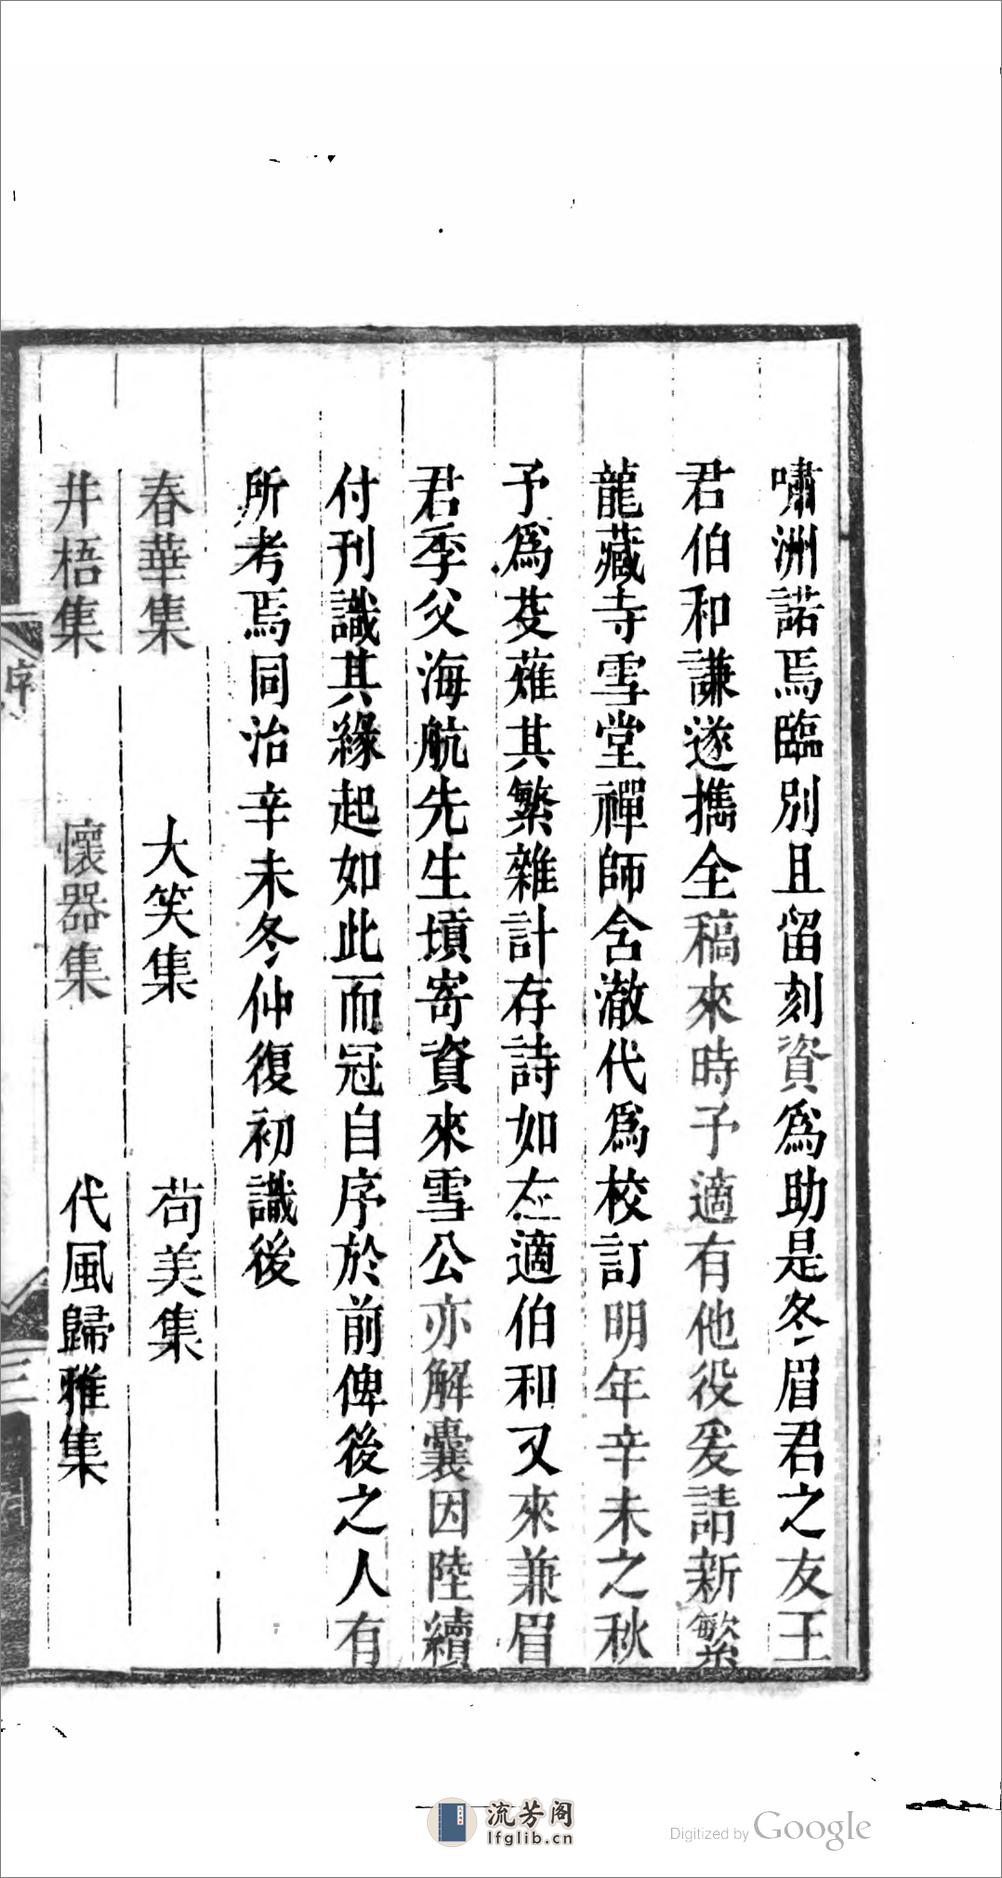 嘯洲諾焉臨別且留刻資爲助是冬眉君之友王
君伯和謙遂攜全稿來時予適有他役爰請新繁
龍藏寺雪堂禪師含澈代爲校訂明年辛未之秋
予爲芟薙其繁雜計存詩如左適伯和又來兼眉
君季父海航先生塡寄資來雪公亦解囊因陸續
付刊識其緣起如此而冠自序於前俾後之人有
所考焉同治辛未冬仲復初識後
春華集 大笑集 苟美集
井梧集 懷器集 代風歸雅集
序
三
流芳阁
lfglib.cn
Digitized by Google